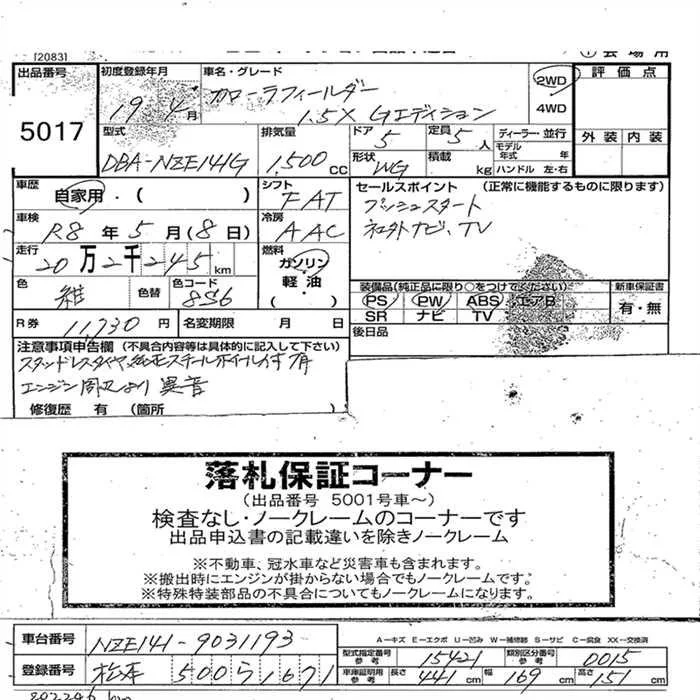 [2083]
出品番号
5017
初度登録年月
19 年 4 月
車名・グレード
カローラフィールダー
1.5X Gエディション
2WD
4WD
評価点
外装 内装
型式
DBA-NZE141G
排気量
1,500 CC
ドア 5
定員 5 人
形状 WG
積載 kg
ディーラー・並行
モデル年式 年
ハンドル 左・右
車歴
自家用・( )
シフト
FAT
セールスポイント (正常に機能するものに限ります)
プッシュスタート
社外ナビ、TV
車検
R8 年 5 月 (8 日)
冷房
AAC
走行
20万2千245 km
燃料
ガソリン
軽油
・( )
色
紺
色替
色コード
8S6
装備品(純正品に限り○をつけてください)
PS PW ABS エアB
SR ナビ TV
新車保証書
有・無
R券
11,730 円
名変期限 月 日
後日品
注意事項申告欄 (不具合内容等は具体的に記入して下さい)
エンジン周辺より異音
修復歴 有 (箇所
落札保証コーナー
(出品番号 5001号車～)
検査なし・ノークレームのコーナーです
出品申込書の記載違いを除きノークレーム
※不動車、冠水車など災害車も含まれます。
※搬出時にエンジンが掛からない場合でもノークレームです。
※特殊特装部品の不具合についてもノークレームになります。
A－キズ E－エクボ U－凹み W－補修跡 S－サビ C－腐食 XX－交換済
車台番号
NZE141-9031193
型式指定番号 参考
15421
類別区分番号 参考
0015
登録番号
松本 500 ら 1671
車庫証明用 参考
長さ 441 cm
幅 169 cm
高さ 151 cm